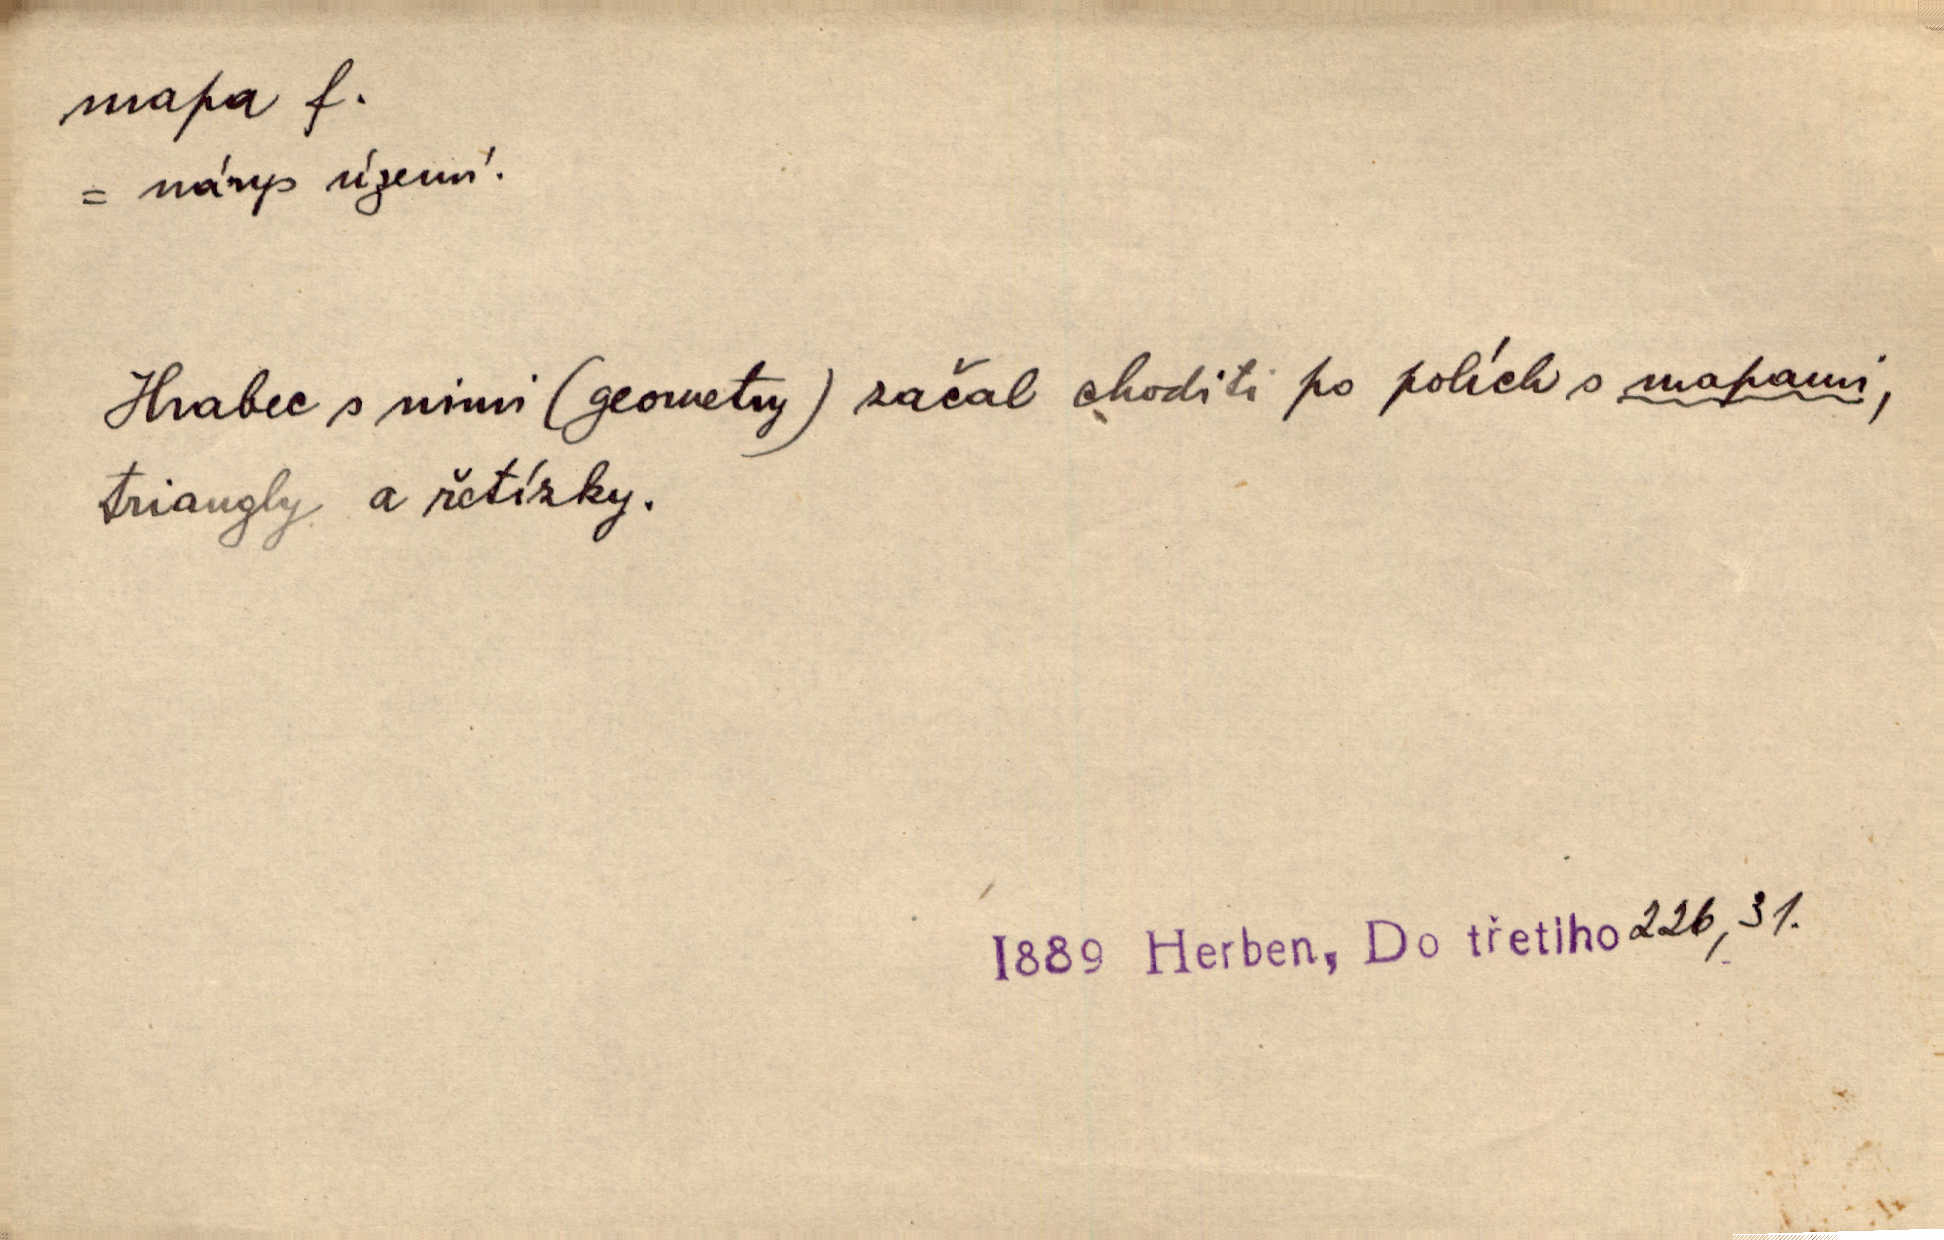 mapa f.
= nárys území.
Hrabec s nimi (geometry) začal choditi po polích s mapami,
triangly a řetízky.
1889 Herben, Do třetiho 226, 31.